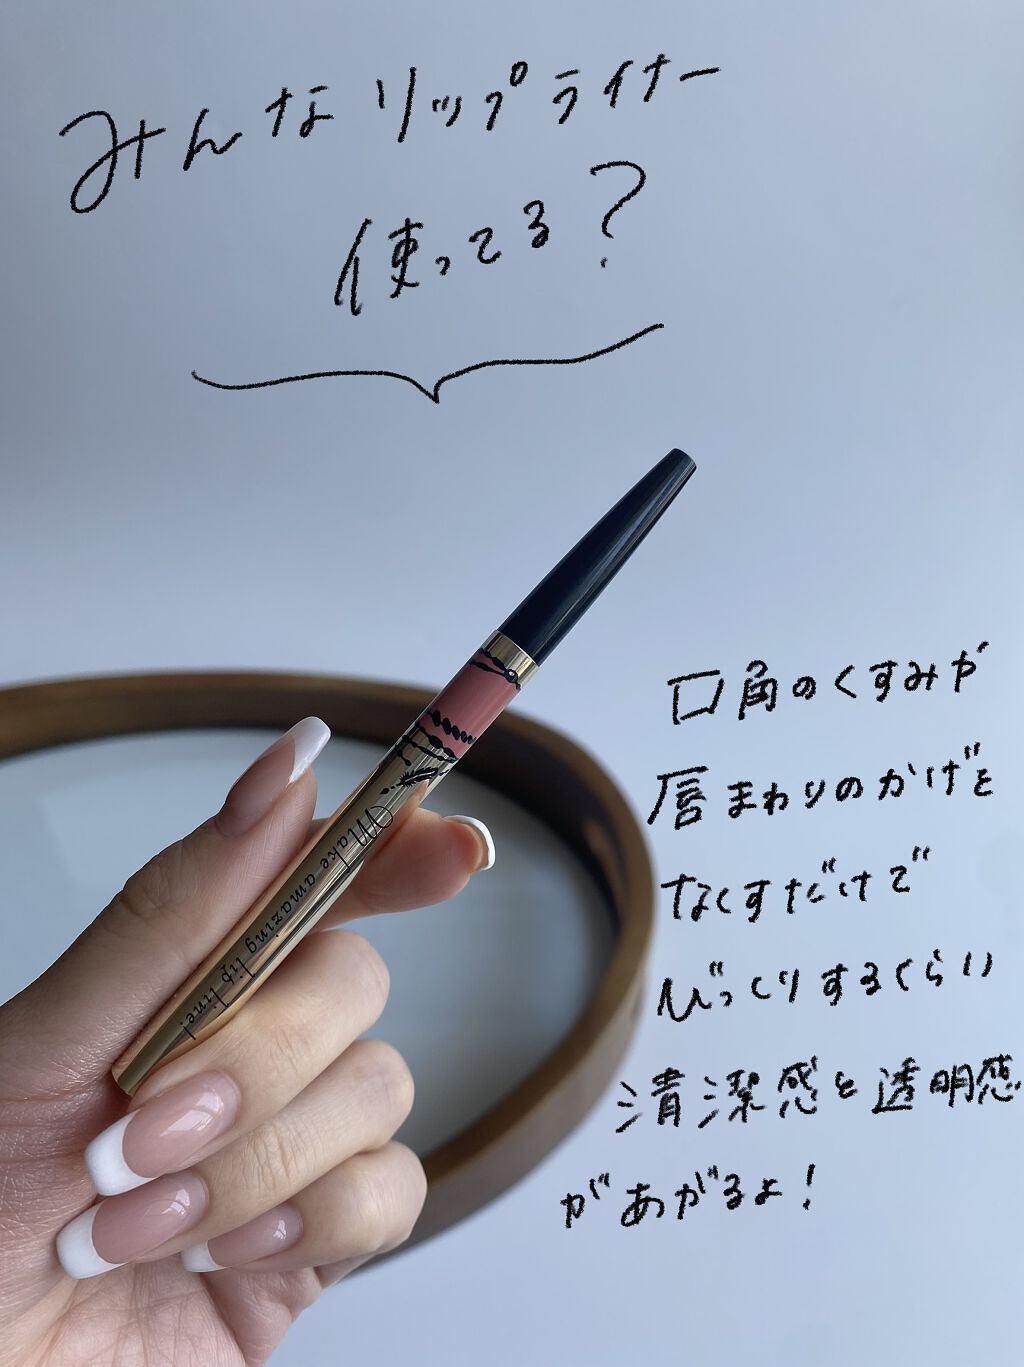 みんなリップライナー
使ってる?
口角のくすみや
唇まわりのかげを
なくすだけで
びっくりするくらい
清潔感と透明感
があがるよ!
Make amazing lip line!